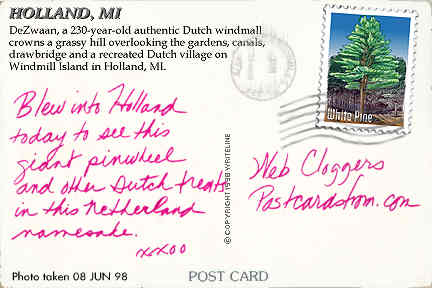 HOLLAND, MI
DeZwaan, a 230-year-old authentic Dutch windmall
crowns a grassy hill overlooking the gardens, canals,
drawbridge and a recreated Dutch village on
Windmill Island in Holland, MI.
White Pine
Blew into Holland
today to see this
giant pinwheel
and other Dutch treats
in this Netherland
namesake.
xxoo
© COPYRIGHT 1998 WRITELINE
Web Cloggers
Postcardsfrom.com
Photo taken 08 JUN 98
POST CARD